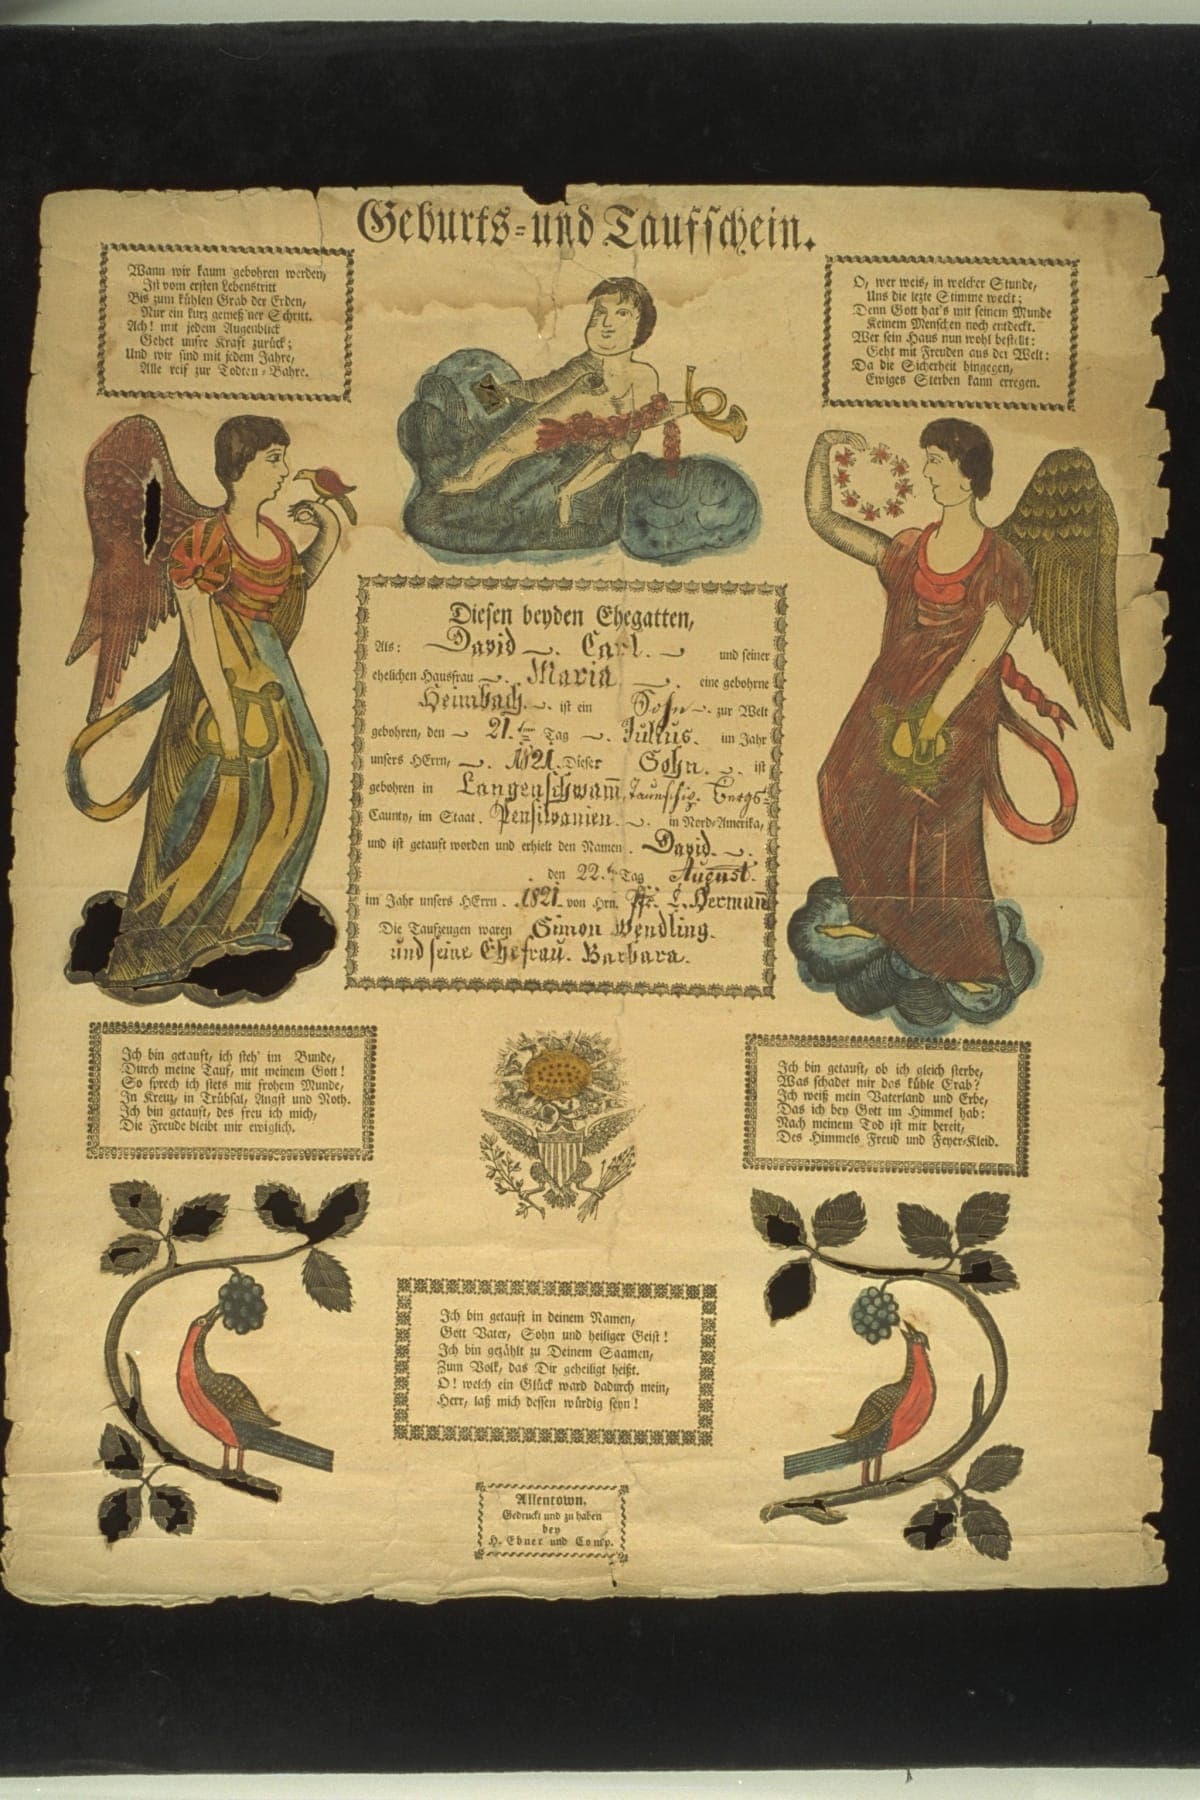 Geburts-und Taufschein.
Wann wir kaum gebohren werden,
Ist vom ersten Lebenstritt
Bis zum kühlen Grab der Erden,
Nur ein kurz gemeß'ner Schritt.
Ach! mit jedem Augenblick
Gehet unsre Kraft zurück;
Und wir sind mit jedem Jahre,
Alle reif zur Todten-Bahre.
O, wer weis, in welcher Stunde,
Uns die lezte Stimme weckt;
Denn Gott hat's mit seinem Munde
Keinem Menschen noch entdeckt.
Wer sein Haus nun wohl bestellt:
Geht mit Freuden aus der Welt:
Da die Sicherheit hingegen,
Ewiges Sterben kann erregen.
Diesen beyden Ehegatten,
Als: David Carl. und seiner
ehelichen Hausfrau Maria eine gebohrne
Heimbach. ist ein Sohn zur Welt
gebohren, den 21. Tag Julius. im Jahr
unsers HErrn, 1821. Dieser Sohn. ist
gebohren in Langenschwam̅, Taunschip. Bergs
Caunty, im Staat. Pensilvanien. in Nord-Amerika,
und ist getauft worden und erhielt den Namen. David.
den 22. Tag August.
im Jahr unsers HErrn. 1821. von Hrn. Pfr. Herman̅
Die Taufzeugen waren Simon Wendling.
und seine Ehefrau. Barbara.
Ich bin getauft, ich steh' im Bunde,
Durch meine Tauf, mit meinem Gott!
So sprech ich stets mit frohem Munde,
In Kreuz, in Trübsal, Angst und Noth.
Ich bin getauft, des freu ich mich,
Die Freude bleibt mir ewiglich.
Ich bin getauft, ob ich gleich sterbe,
Was schadet mir das kühle Grab?
Ich weiß mein Vaterland und Erbe,
Das ich bey Gott im Himmel hab:
Nach meinem Tod ist mir bereit,
Des Himmels Freud und Feyer-Kleid.
Ich bin getauft in deinem Namen,
Gott Vater, Sohn und heiliger Geist!
Ich bin gezählt zu Deinem Saamen,
Zum Volk, das Dir geheiligt heißt.
O! welch ein Glück ward dadurch mein,
Herr, laß mich dessen würdig seyn!
Allentown.
Gedruckt und zu haben
bey
H. Ebner und Comp.